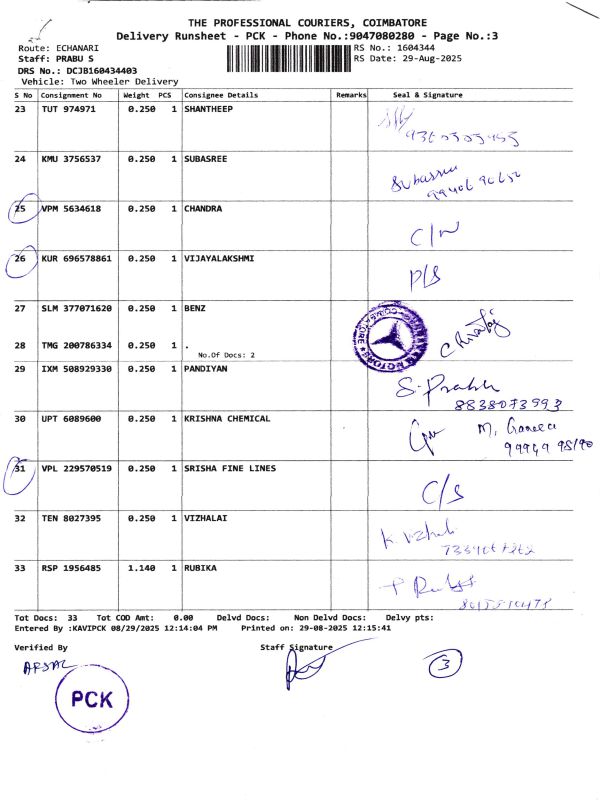 THE PROFESSIONAL COURIERS, COIMBATORE
Delivery Runsheet - PCK - Phone No.:9047080280 - Page No.:3
Route: ECHANARI RS No.: 1604344
Staff: PRABU S RS Date: 29-Aug-2025
DRS No.: DCJB160434403
Vehicle: Two Wheeler Delivery
S No Consignment No Weight PCS Consignee Details Remarks Seal & Signature
23 TUT 974971 0.250 1 SHANTHEEP
24 KMU 3756537 0.250 1 SUBASREE
Subasree
25 VPM 5634618 0.250 1 CHANDRA
C/N
26 KUR 696578861 0.250 1 VIJAYALAKSHMI
P/S
27 SLM 377071620 0.250 1 BENZ
28 TMG 200786334 0.250 1 .
No.Of Docs: 2
29 IXM 508929330 0.250 1 PANDIYAN
8838073993
30 UPT 6089600 0.250 1 KRISHNA CHEMICAL
31 VPL 229570519 0.250 1 SRISHA FINE LINES
C/S
32 TEN 8027395 0.250 1 VIZHALAI
33 RSP 1956485 1.140 1 RUBIKA
Tot Docs: 33 Tot COD Amt: 0.00 Delvd Docs: Non Delvd Docs: Delvy pts:
Entered By :KAVIPCK 08/29/2025 12:14:04 PM Printed on: 29-08-2025 12:15:41
Verified By Staff Signature
AFSAL
3
PCK